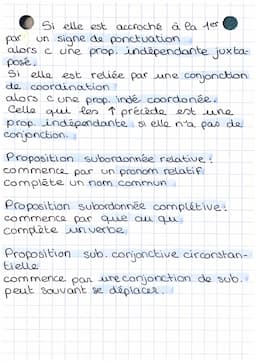 Si elle est accroché à la 1er
par un signe de ponctuation
alors c une prop. indépendante juxta-
posé.
Si elle est reliée par une conjonction
de coordination
alors c une prop. indé. coordonée.
Celle qui les ↑ précède est une
prop indépendante si elle n'a pas de
conjonction.
Proposition subordonnée relative :
commence par un pronom relatif
complète un nom commun
Proposition subordonnée complétive :
commence par que ou qu
complète un verbe
Proposition sub. conjonctive circonstan-
tielle
commence par une conjonction de sub.
peut souvant se déplacer.